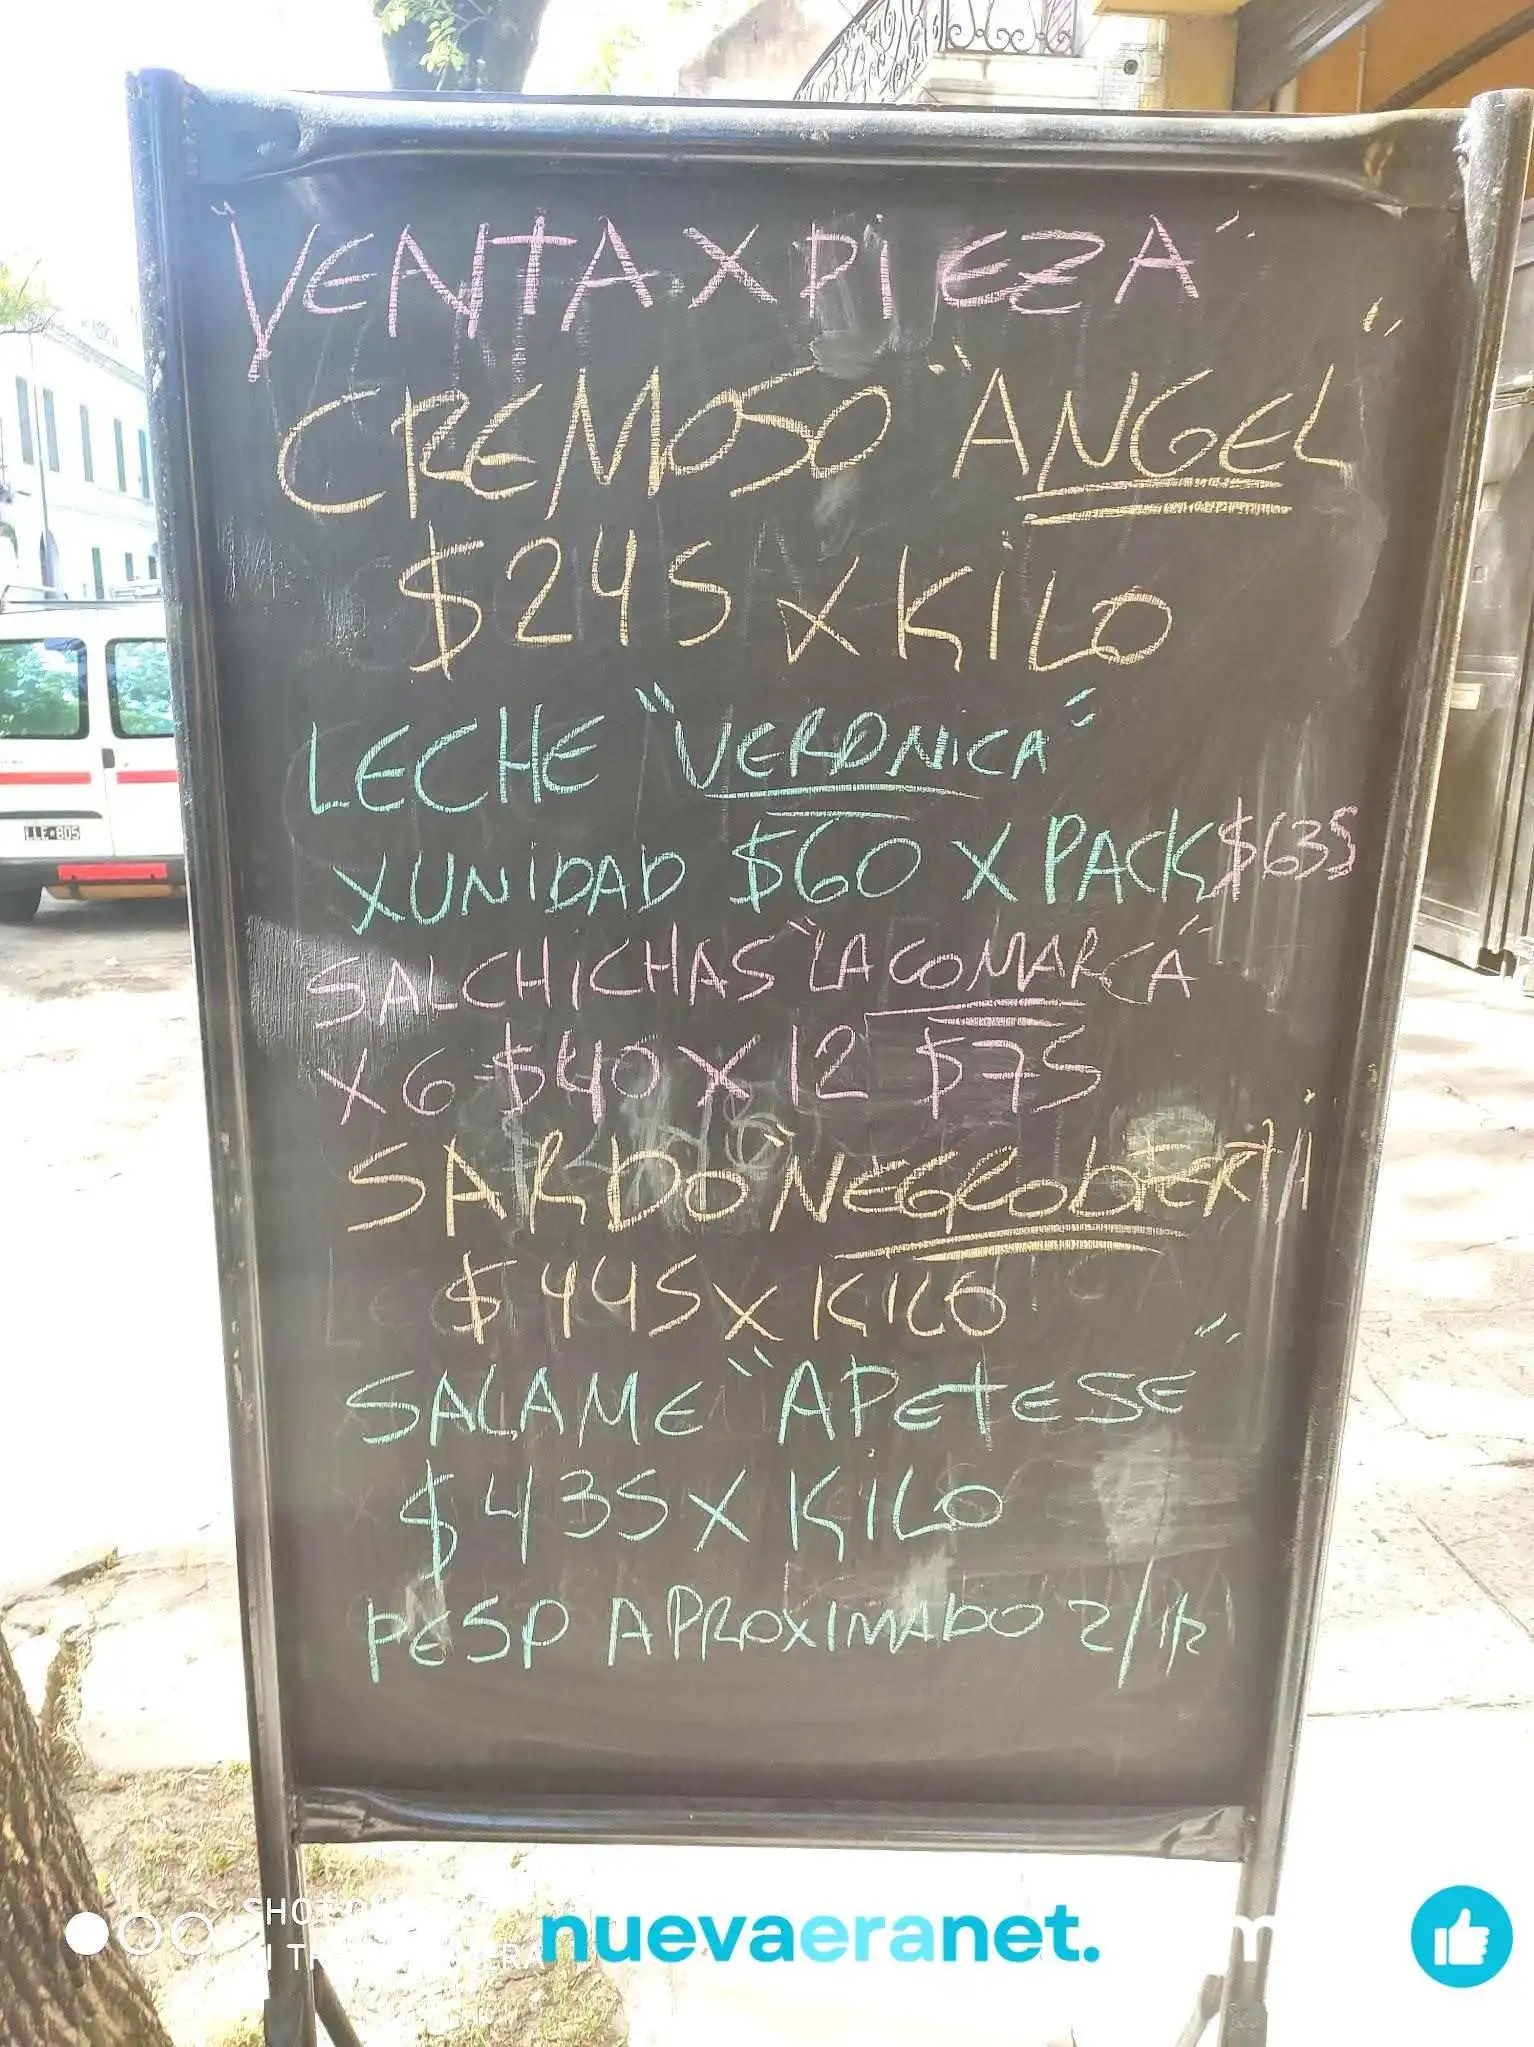 "VENTA X PIEZA"
CREMOSO "ANGEL"
$245 X KILO
LECHE "VERONICA"
XUNIDAD $60 X PACK $635
SALCHICHAS "LA COMARCA"
X6 $40 X 12 $75
SARDO NEGCOBIERTA
$445 X KILO
SALAME "APETESE"
$435 X KILO
PESO APROXIMADO 2/1½
LLE·805
nuevaeranet.